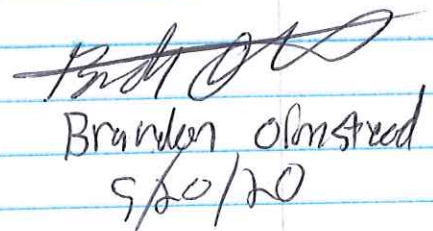 Brandon Olmstead
9/20/20